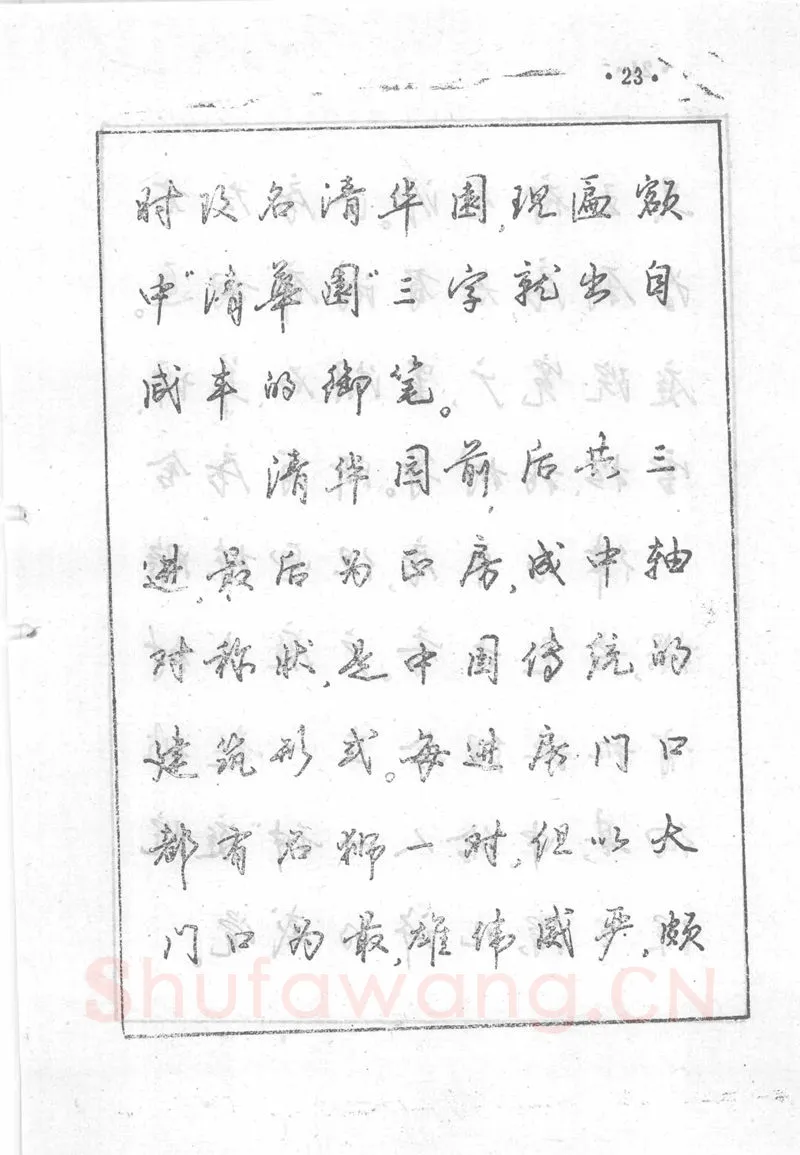 ·23·
时改名清华园,现匾额
中"清華園"三字就出自
咸丰的御笔。
清华园前后共三
进,最后为正房,成中轴
对称状,是中国传统的
建筑形式。每进房门口
都有石狮一对,但以大
门口为最,雄伟威严,颇
Shufawang.CN